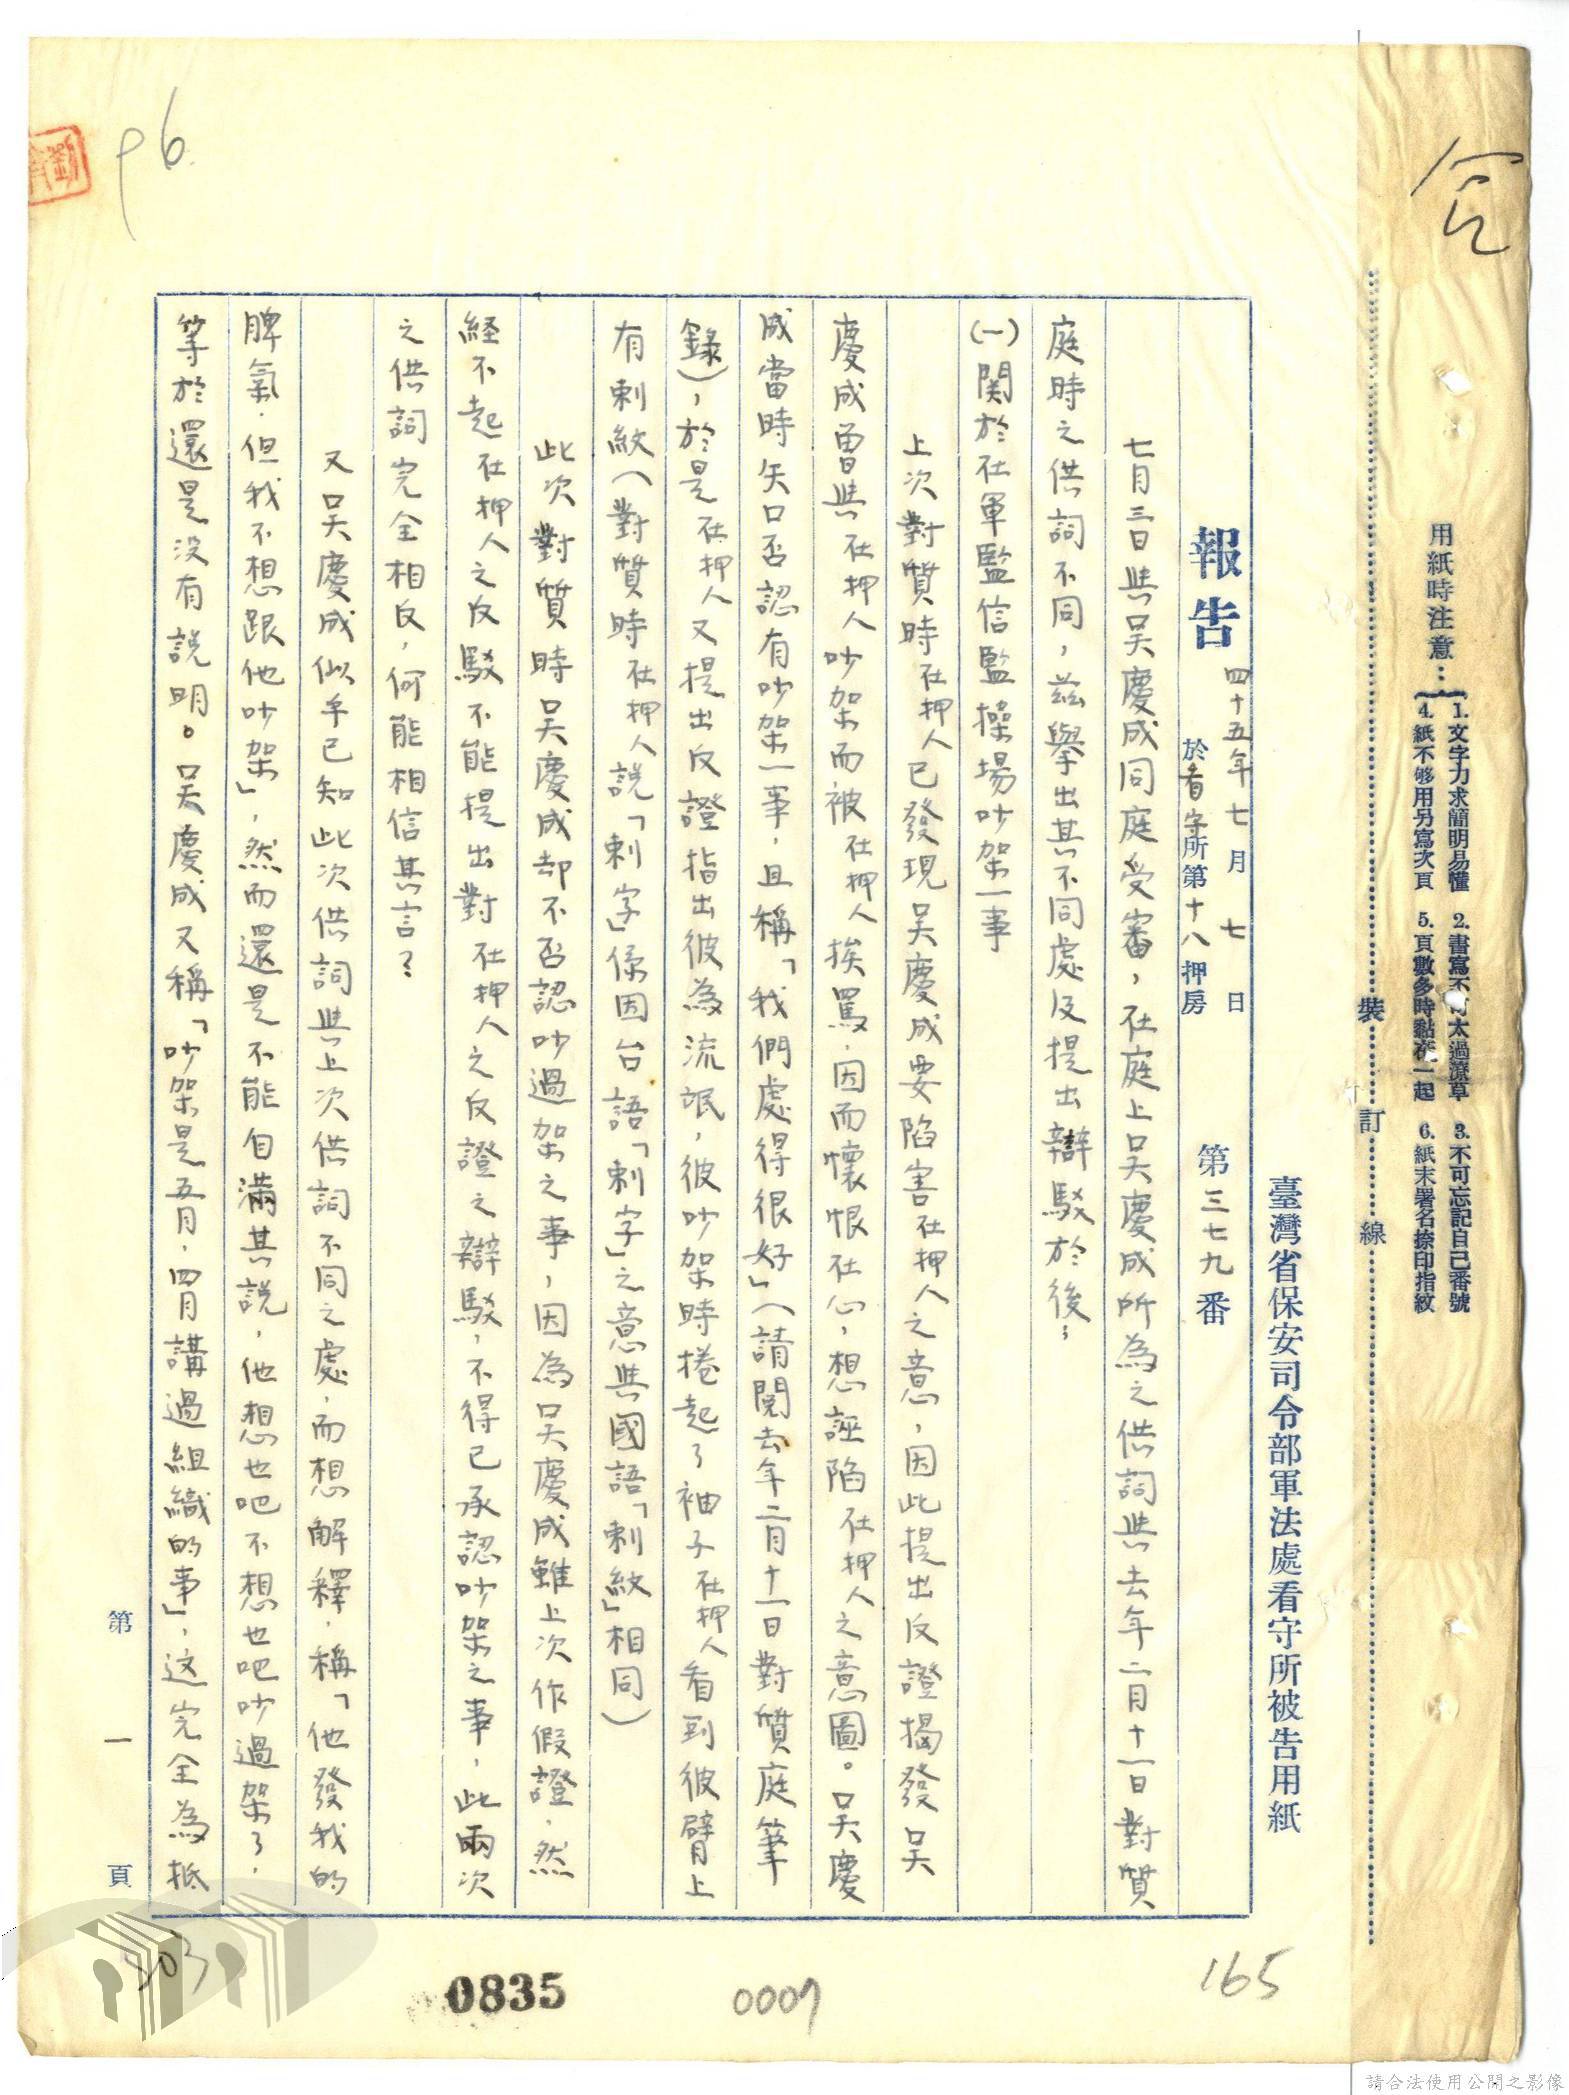 用紙時注意：
1.文字力求簡明易懂 2.書寫不可太過潦草 3.不可忘記自己番號
4.紙不够用另寫次頁 5.頁數多時黏在一起 6.紙末署名捺印指紋
裝訂線
臺灣省保安司令部軍法處看守所被告用紙
報告
四十五年七月七日
於看守所第十八押房
第三七九番
七月三日與吴慶成同庭受審，在庭上吴慶成所為之供詞與去年二月十一日對質
庭時之供詞不同，兹舉出其不同處及提出辯駁於後；
(一)関於在軍監信監操場吵架一事
上次對質時在押人已發現吴慶成要陷害在押人之意，因此提出反證揭發吴
慶成曾與在押人吵架而被在押人挨罵，因而懷恨在心，想誣陷在押人之意圖。吴慶
成當時矢口否認有吵架一事，且稱「我們處得很好」（請閱去年二月十一日對質庭筆
錄），於是在押人又提出反證指出彼為流氓，彼吵架時捲起了袖子在押人看到彼臂上
有刺紋（對質時在押人説「刺字」係因台語「刺字」之意與國語「刺紋」相同）
此次對質時吴慶成却不否認吵過架之事，因為吴慶成雖上次作假證，然
経不起在押人之反駁不能提出對在押人之反證之辯駁，不得已承認吵架之事，此兩次
之供詞完全相反，何能相信其言？
又吴慶成似乎已知此次供詞與上次供詞不同之處，而想解釋，稱「他發我的
脾氣，但我不想跟他吵架」，然而還是不能自滿其説，他想也吧不想也吧吵過架了，
等於還是没有説明。吴慶成又稱「吵架是五月，四月講過組織的事」，这完全為抵
第一頁
96
165
0007
0835
請合法使用公開之影像